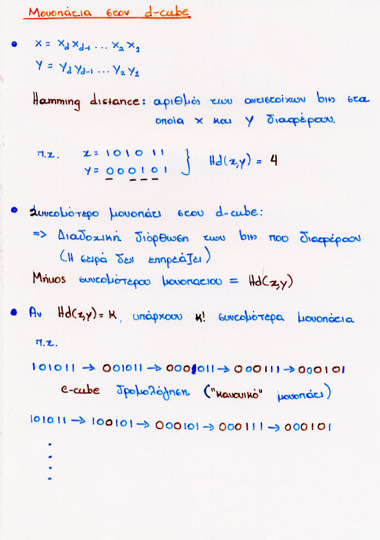 Μονοπάτια στον d-cube
• X = Xd Xd-1 ... X2 X1
Y = Yd Yd-1 ... Y2 Y1
Hamming distance: αριθμός των αντιστοίχων bits στα
οποία x και y διαφέρουν.
π.χ. x = 1 0 1 0 1 1
y = 0 0 0 1 0 1 } Hd(x,y) = 4
• Συντομότερο μονοπάτι στον d-cube:
=> Διαδοχική διόρθωση των bits που διαφέρουν
(Η σειρά δεν επηρεάζει)
Μήκος συντομότερου μονοπατιού = Hd(x,y)
• Αν Hd(x,y) = κ, υπάρχουν κ! συντομότερα μονοπάτια
π.χ.
101011 → 001011 → 0001011 → 000111 → 000101
e-cube δρομολόγηση ("κανονικό" μονοπάτι)
101011 → 100101 → 000101 → 000111 → 000101